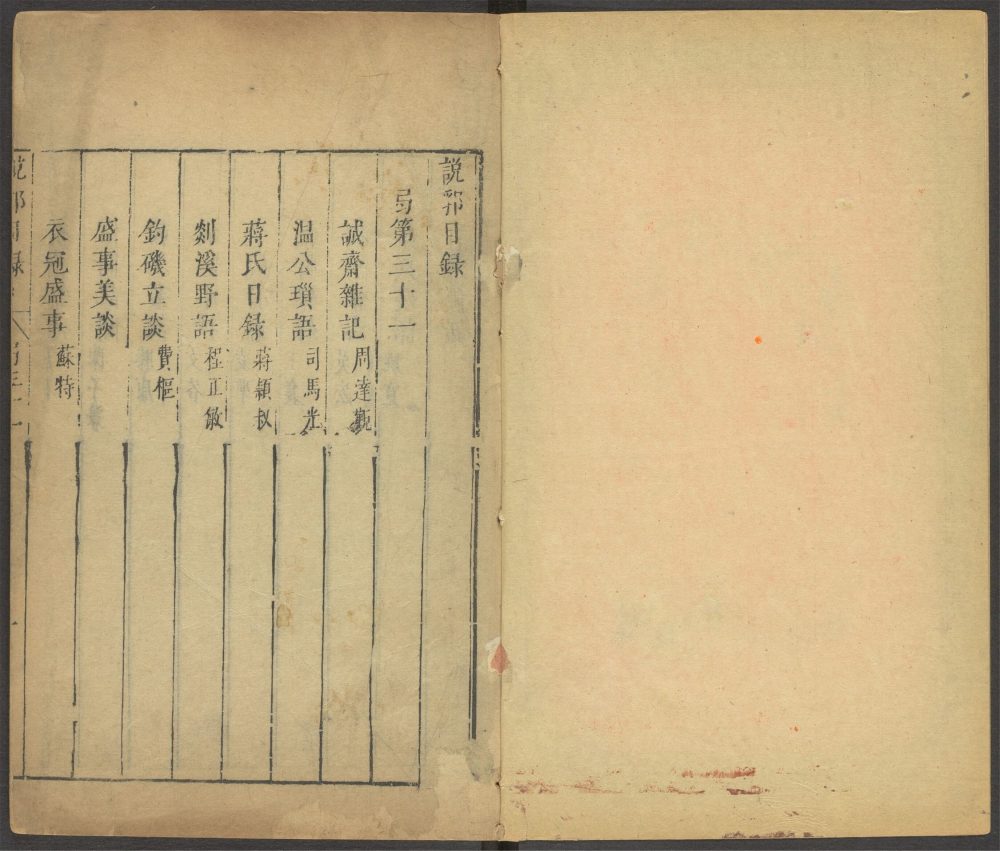 說郛目録
弓第三十一
誠齋雜記 周達觀
温公瑣語 司馬光
蔣氏日録 蔣穎叔
剡溪野語 程正敏
釣磯立談 費樞
盛事美談
衣冠盛事 蘇特